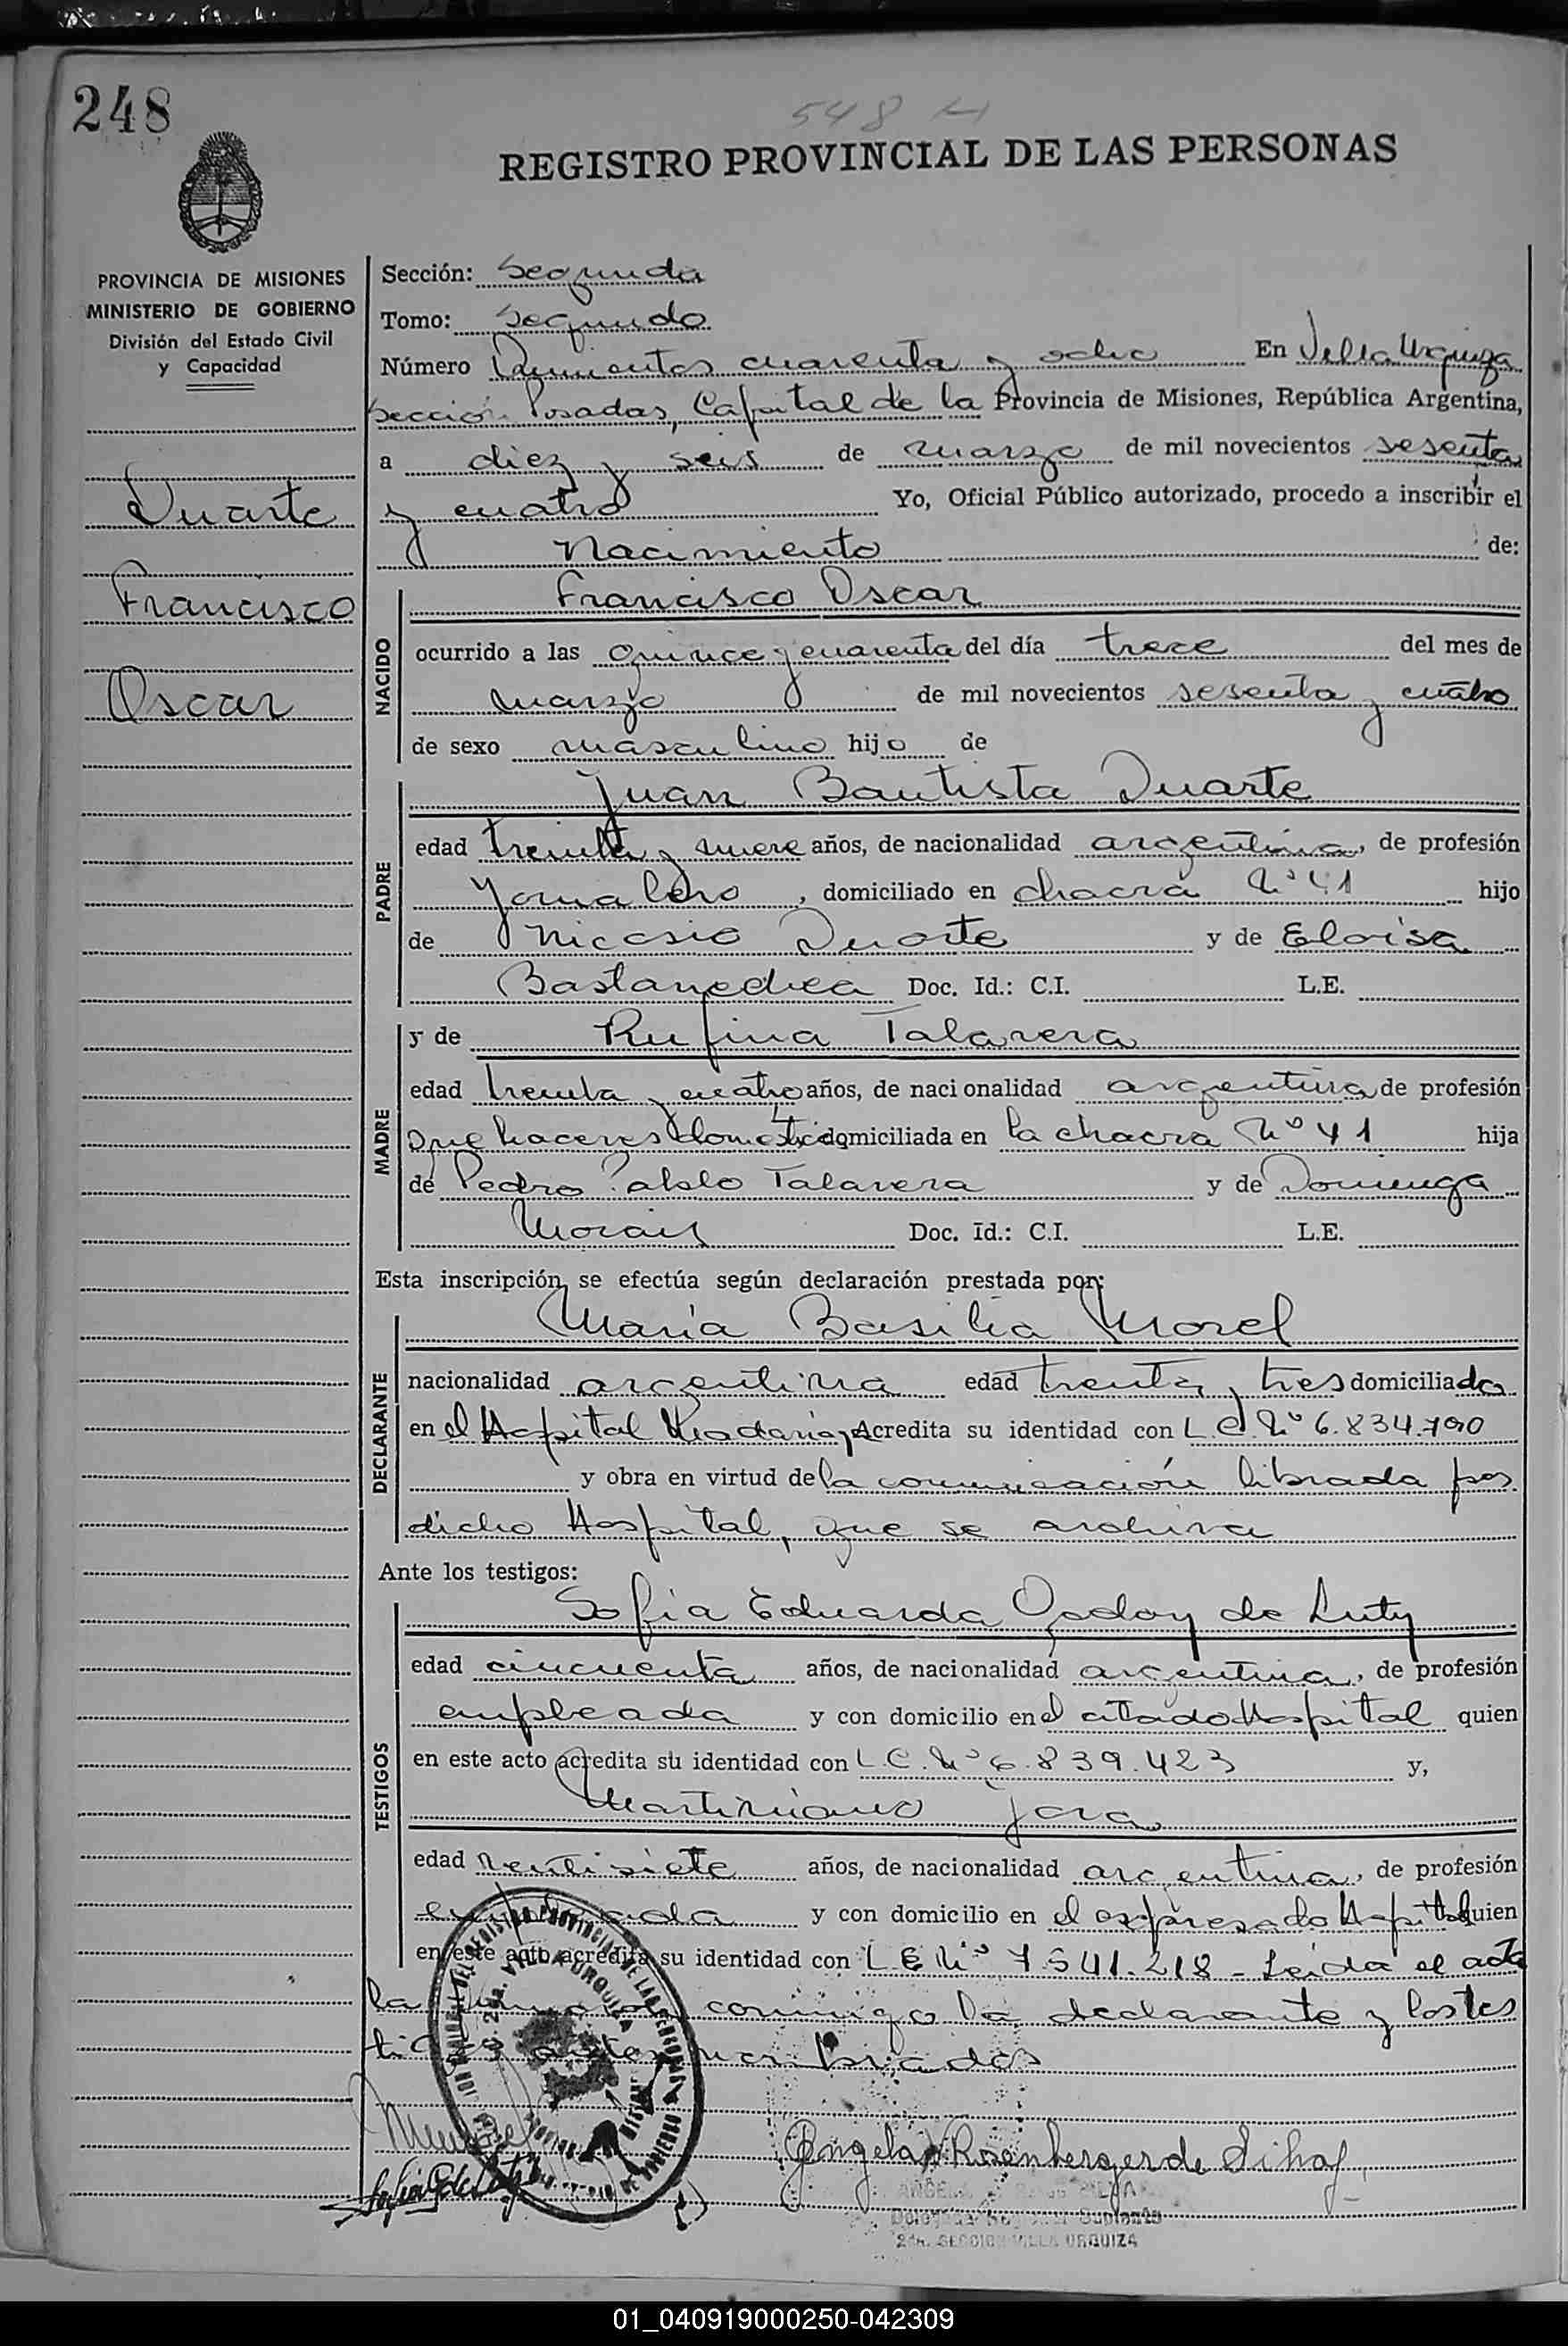 248
548 H
REGISTRO PROVINCIAL DE LAS PERSONAS
PROVINCIA DE MISIONES
MINISTERIO DE GOBIERNO
División del Estado Civil
y Capacidad
Duarte
Francisco
Oscar
Sección: Segunda
Tomo: Segundo
Número Quinientos cuarenta y ocho En Villa Urquiza
Sección Posadas, Capital de la Provincia de Misiones, República Argentina,
a diez y seis de marzo de mil novecientos sesenta
y cuatro Yo, Oficial Público autorizado, procedo a inscribir el
Nacimiento de:
NACIDO
Francisco Oscar
ocurrido a las quince y cuarenta del día trece del mes de
marzo de mil novecientos sesenta y cuatro
de sexo masculino hijo de
PADRE
Juan Bautista Duarte
edad treinta y nueve años, de nacionalidad argentina, de profesión
Jornalero, domiciliado en chacra Nº 41 hijo
de Nicasio Duarte y de Eloisa
Doc. Id.: C.I. L.E.
MADRE
y de Rufina Talavera
edad treinta y cuatro años, de nacionalidad argentina de profesión
Que haceres domesticos domiciliada en la chacra Nº 41 hija
de Pedro Pablo Talavera y de Dominga
Morais Doc. Id.: C.I. L.E.
Esta inscripción se efectúa según declaración prestada por:
DECLARANTE
María Basilia Morel
nacionalidad argentina edad treinta y tres domiciliada
en el Hospital Madariaga, Acredita su identidad con L.C. Nº 6.834.790
y obra en virtud de la comunicación librada por
dicho Hospital, que se archiva
Ante los testigos:
TESTIGOS
Sofia Eduarda Godoy de Luty
edad cincuenta años, de nacionalidad argentina, de profesión
empleada y con domicilio en el citado Hospital quien
en este acto acredita su identidad con L.C. Nº 6.839.423 y,
Martiniano Jara
edad veintisiete años, de nacionalidad argentina, de profesión
empleada y con domicilio en el expresado Hospital quien
en este acto acredita su identidad con L.E. Nº 7.541.218 - Leida el acta
la conmigo la declarante y los tes
tigos antes nombrados
Angela Rosenberger de
2da. SECCION VILLA URQUIZA
01_040919000250-042309